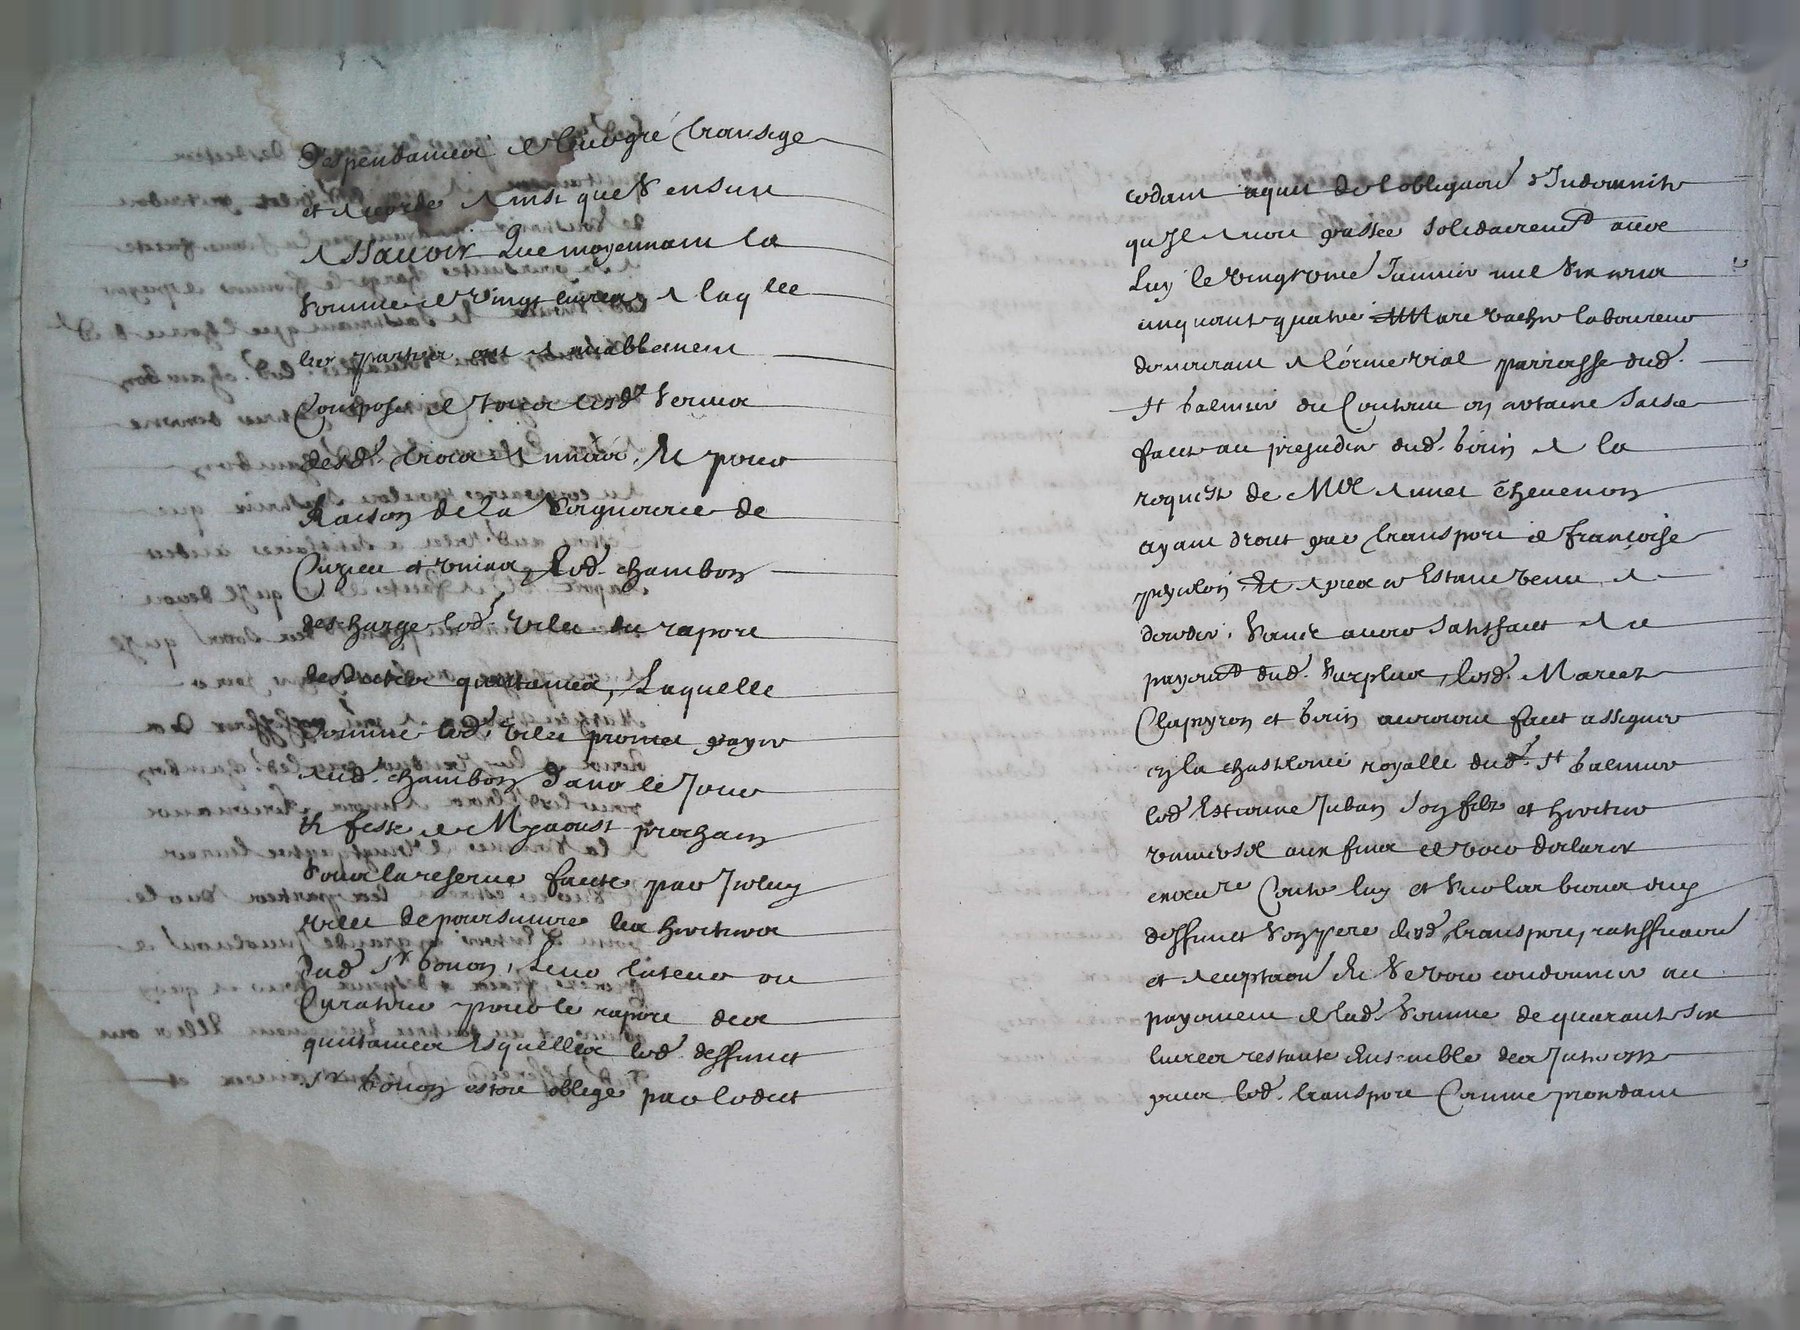 despendances de leur gré transige
et accorde Ainsi que S'ensuit
Assavoir Que moyennant la
somme de vingt livres a laqlle
les parties ont amiablement
Compose de tous lesd. servis
desd. trois années. Et pour
Raison de la Seigneurie de
Curieu et Led. chambon
descharge led. du raport
desdictes quittances, Laquelle
somme led. promet payer
aud. chambon dans le Jour
et feste de Myaoust prochain
soubz la reserve faicte par Iceluy
de poursuivre les heritiers
dud. Sr bonon, leur tuteur ou
Curateur pour le raport des
quittances Esquelles led. deffunct
Sr bonon estoit oblegé par ledict
cedant aquit de l'obligaon d'Indemnite
qu'Il avoit passée solidairemt avec
Luy le vingt Janvier mil six cens
cinquante quatre laboureur
demeurant a parroisse dud.
St Galmier du Contenu en
faict au prejudice dud. a la
requeste de Mre Annet Thevenon
ayant droit par transport de françoise
peyulon Et apres Estant venu a
deceder, sans avoir satisfaict a ce
payemt dud. surplus, lesd. Marcet
Clapeyron et auroient faict assigner
en la chastlenie royalle dud. St Galmier
led. Estienne Juban son filz et heritier
universel aux fins de voir declarer
contre luy et sur les biens dud.
deffunct son pere lesd. transport, ratiffication
et acceptaon Et Se voir condamner au
payement de lad. somme de quarante six
livres restante Ensemble des Interestz
pour led. transport Comme procedant